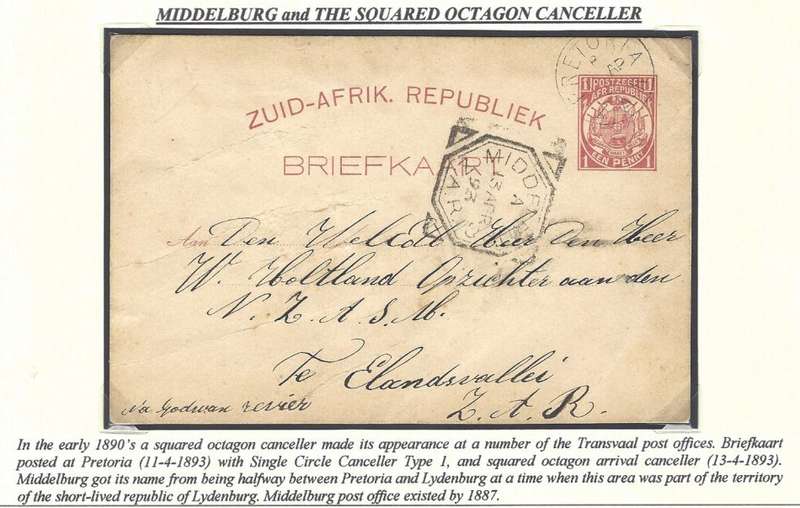 MIDDELBURG and THE SQUARED OCTAGON CANCELLER
PRETORIA
POSTZEGEL
Z. AFR. REPUBLIEK
EEN PENNY
1 1
ZUID-AFRIK. REPUBLIEK
BRIEFKAART
MIDD
A
13 APR
93
Z.A.R.
Aan Den Weledl Heer Den Heer
W. Holtland Opzichter aan den
N. Z. A. S. M.
Te Elandsvallei
Z. A. R.
Via Godwan revier
In the early 1890's a squared octagon canceller made its appearance at a number of the Transvaal post offices. Briefkaart
posted at Pretoria (11-4-1893) with Single Circle Canceller Type 1, and squared octagon arrival canceller (13-4-1893).
Middelburg got its name from being halfway between Pretoria and Lydenburg at a time when this area was part of the territory
of the short-lived republic of Lydenburg. Middelburg post office existed by 1887.